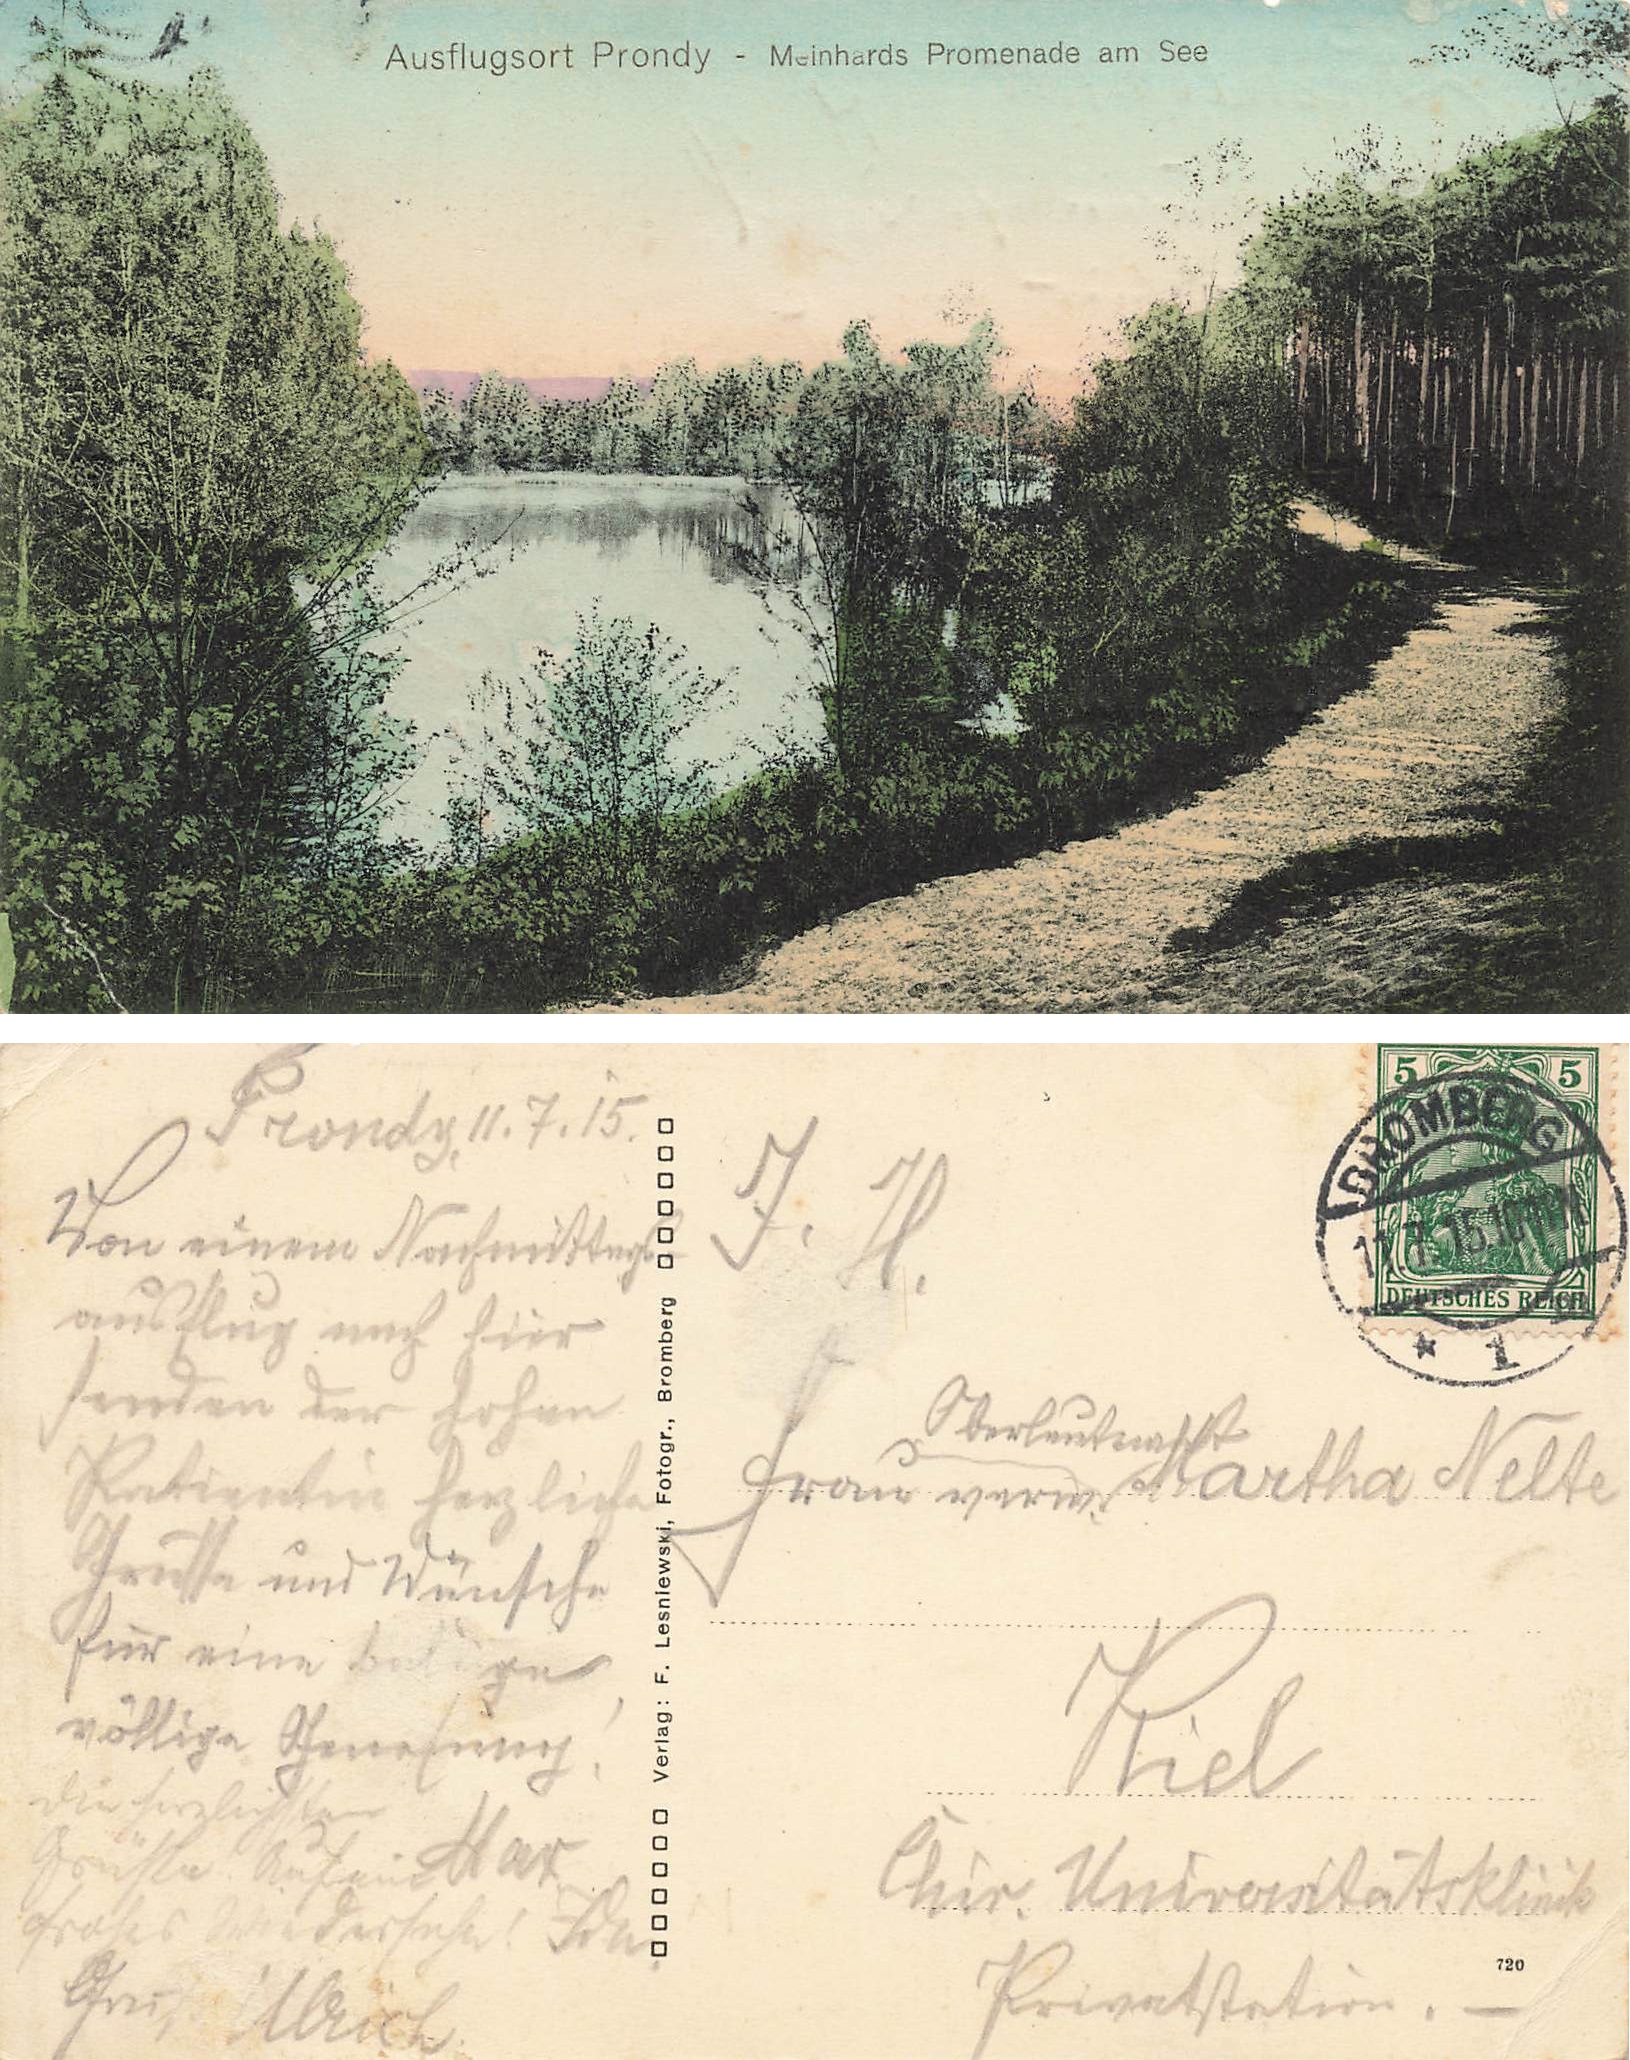 Ausflugsort Prondy - Meinhards Promenade am See
Prondy, 11.7.15.
Von einem Nachmittags-
ausflug nach hier
senden der hohen
Patientin herzliche
Grüsse und Wünsche
für eine baldige
völlige Genesung!
Die herzlichsten
Grüße. Auf ein
Max
frohes Wiedersehn! Ida.
Gruß Ulrich.
Verlag: F. Lesniewski, Fotogr., Bromberg
5 5
BROMBERG
11.7.15.10
DEUTSCHES REICH
* 1
I. H.
Oberleutnant
Frau verw. Martha Nelte
Kiel
Chir. Universitätsklinik
Privatstation. —
720